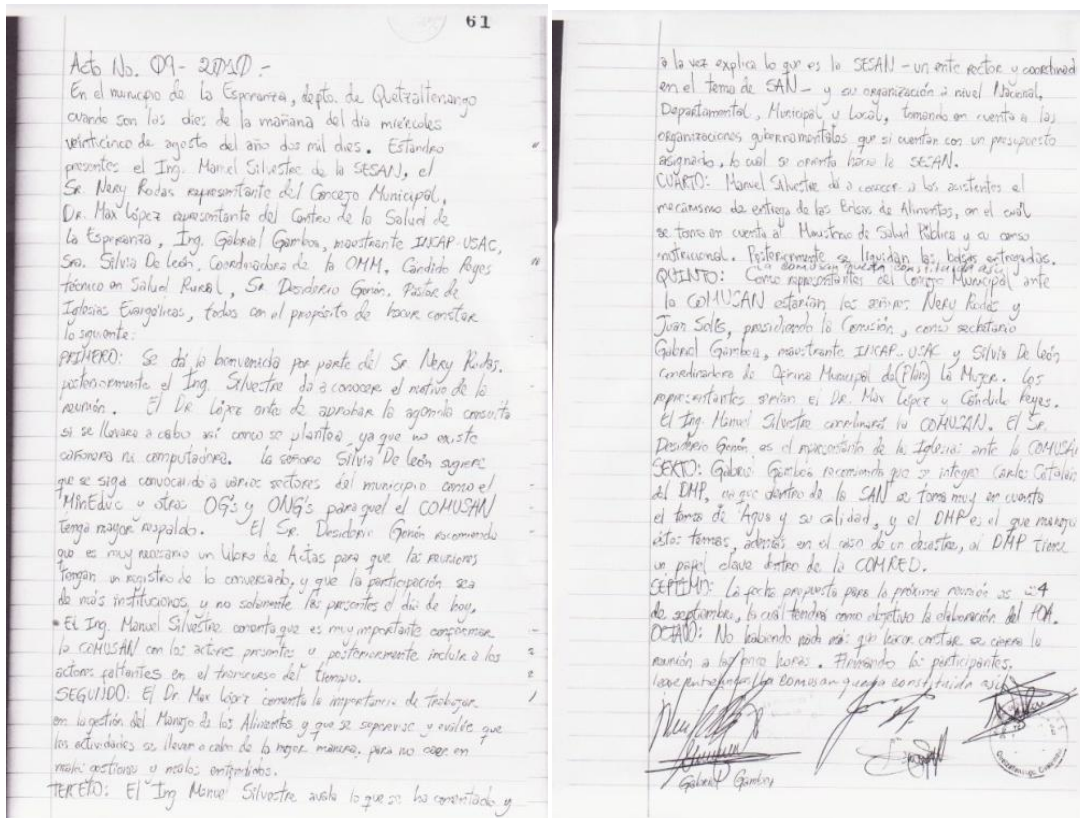 61
Acta No. 09-2010.-
En el municipio de La Esperanza, depto. de Quetzaltenango
cuando son las dies de la mañana del día miércoles
veinticinco de agosto del año dos mil dies. Estando
presentes el Ing. Manuel Silvestre de la SESAN, el
Sr. Nery Rodas representante del Concejo Municipal,
Dr. Max López representante del Centro de la Salud de
La Esperanza, Ing. Gabriel Gamboa, maestrante INCAP-USAC,
Sra. Silvia De León, Coordinadora de la OMM, Cándido Reyes
técnico en Salud Rural, Sr. Desiderio Genón. Pastor de
Iglesias Evangélicas, todos con el propósito de hacer constar
lo siguiente:
PRIMERO: Se dá la bienvenida por parte del Sr. Nery Rodas.
posteriormente el Ing. Silvestre da a conocer el motivo de la
reunión. El Dr. López ante de aprobar la agenda consulta
si se llevara a cabo así como se plantea, ya que no existe
cañonera ni computadora. La señora Silvia De León sugiere
que se siga convocando a varios sectores del municipio como el
MinEduc u otras OG's y ONG's para que el COMUSAN
tenga mayor respaldo. El Sr. Desiderio Genón recomienda
que es muy necesario un Libro de Actas para que las reuniones
tengan un registro de lo conversado, y que la participación sea
de más instituciones, y no solamente las presentes el día de hoy.
El Ing. Manuel Silvestre comenta que es muy importante conformar
la COMUSAN con los actores presentes y posteriormente incluir a los
actores faltantes en el transcurso del tiempo.
SEGUNDO: El Dr Max López comenta la importancia de trabajar
en la gestión del Manejo de los Alimentos y que se supervise y evalúe que
las actividades se lleven a cabo de la mejor manera, para no caer en
malas gestiones u malos entendidos.
TERCERO: El Ing Manuel Silvestre avala lo que se ha comentado y
a la vez explica lo que es la SESAN - un ente rector y coordinad
en el tema de SAN - y su organización a nivel Nacional,
Departamental, Municipal y Local, tomando en cuenta a las
organizaciones gubernamentales que si cuentan con un presupuesto
asignado, lo cuál se orienta hacia la SESAN.
CUARTO: Manuel Silvestre dá a conocer a los asistentes el
mecanismo de entrega de las Bolsas de Alimentos, en el cuál
se toma en cuenta al Ministerio de Salud Pública y su censo
nutricional. Posteriormente se liquidan las bolsas entregadas.
La comusan queda constituida así:
QUINTO: Como representantes del Concejo Municipal ante
la COMUSAN estarían los señores: Nery Rodas y
Juan Solís, presidiendo la Comisión, como secretario
Gabriel Gamboa, maestrante INCAP-USAC y Silvia De León
Coordinadora de Oficina Municipal de (Plan) La Mujer. Los
representantes serían el Dr. Max López y Cándido Reyes.
El Ing. Manuel Silvestre coordinará la COMUSAN. El Sr.
Desiderio Genón es el representante de la Iglesias ante la COMUSAN
SEXTO: Gabriel Gamboa recomienda que se integre Carlos Catalán
del DMP, ya que dentro de la SAN se toma muy en cuenta
el tema de Agua y su calidad, y el DMP es el que maneja
éstos temas, además en el caso de un desastre, el DMP tiene
un papel clave dentro de la COMRED.
SEPTIMO: La fecha propuesta para la próxima reunión es 24
de septiembre, la cuál tendrá como objetivo la elaboración del POA.
OCTAVO: No habiendo nada más que hacer constar se cierra la
reunión a las once horas. Firmando los participantes.
La comusan queda constituida así:
Gabriel Gamboa